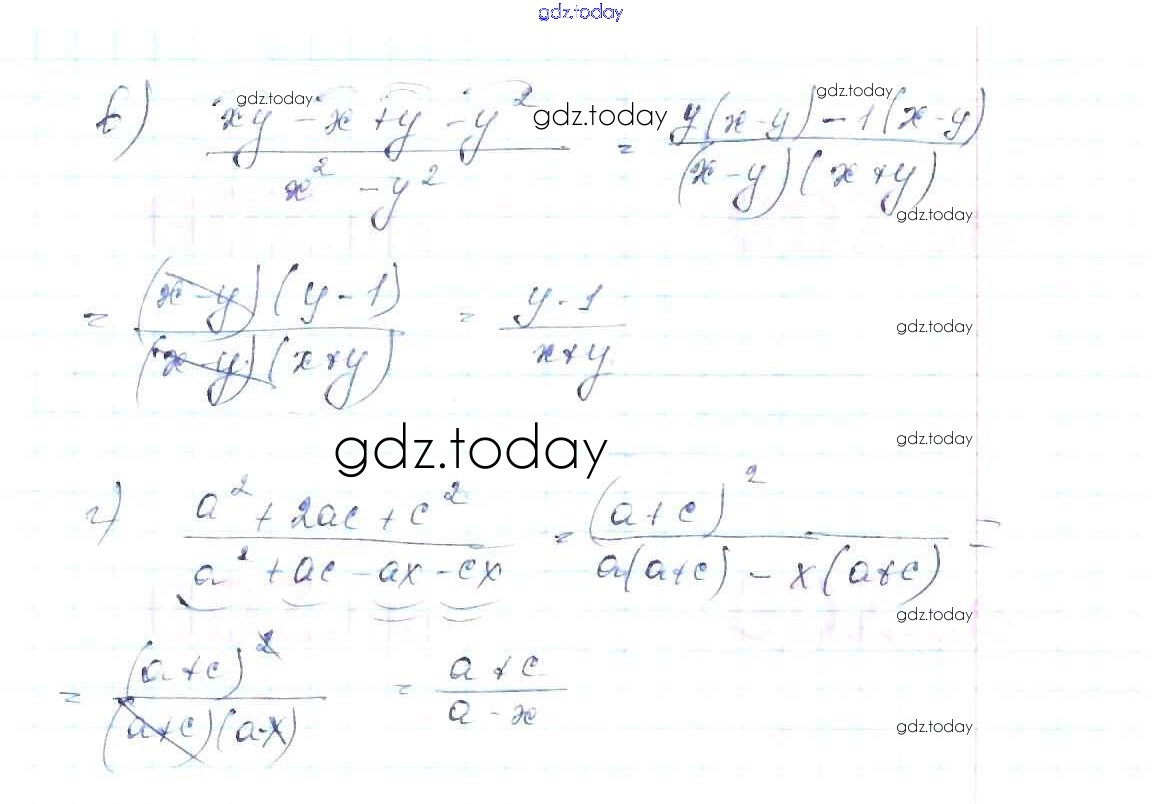 gdz.today
в) (xy - x + y - y²)/(x² - y²) = (y(x-y) - 1(x-y))/((x-y)(x+y))
gdz.today gdz.today gdz.today
gdz.today
= ((x-y)(y-1))/((x-y)(x+y)) = (y-1)/(x+y)
gdz.today
gdz.today
gdz.today
г) (a² + 2ac + c²)/(a² + ac - ax - cx) = (a+c)²/(a(a+c) - x(a+c)) =
gdz.today
= (a+c)²/((a+c)(a-x)) = (a+c)/(a-x)
gdz.today